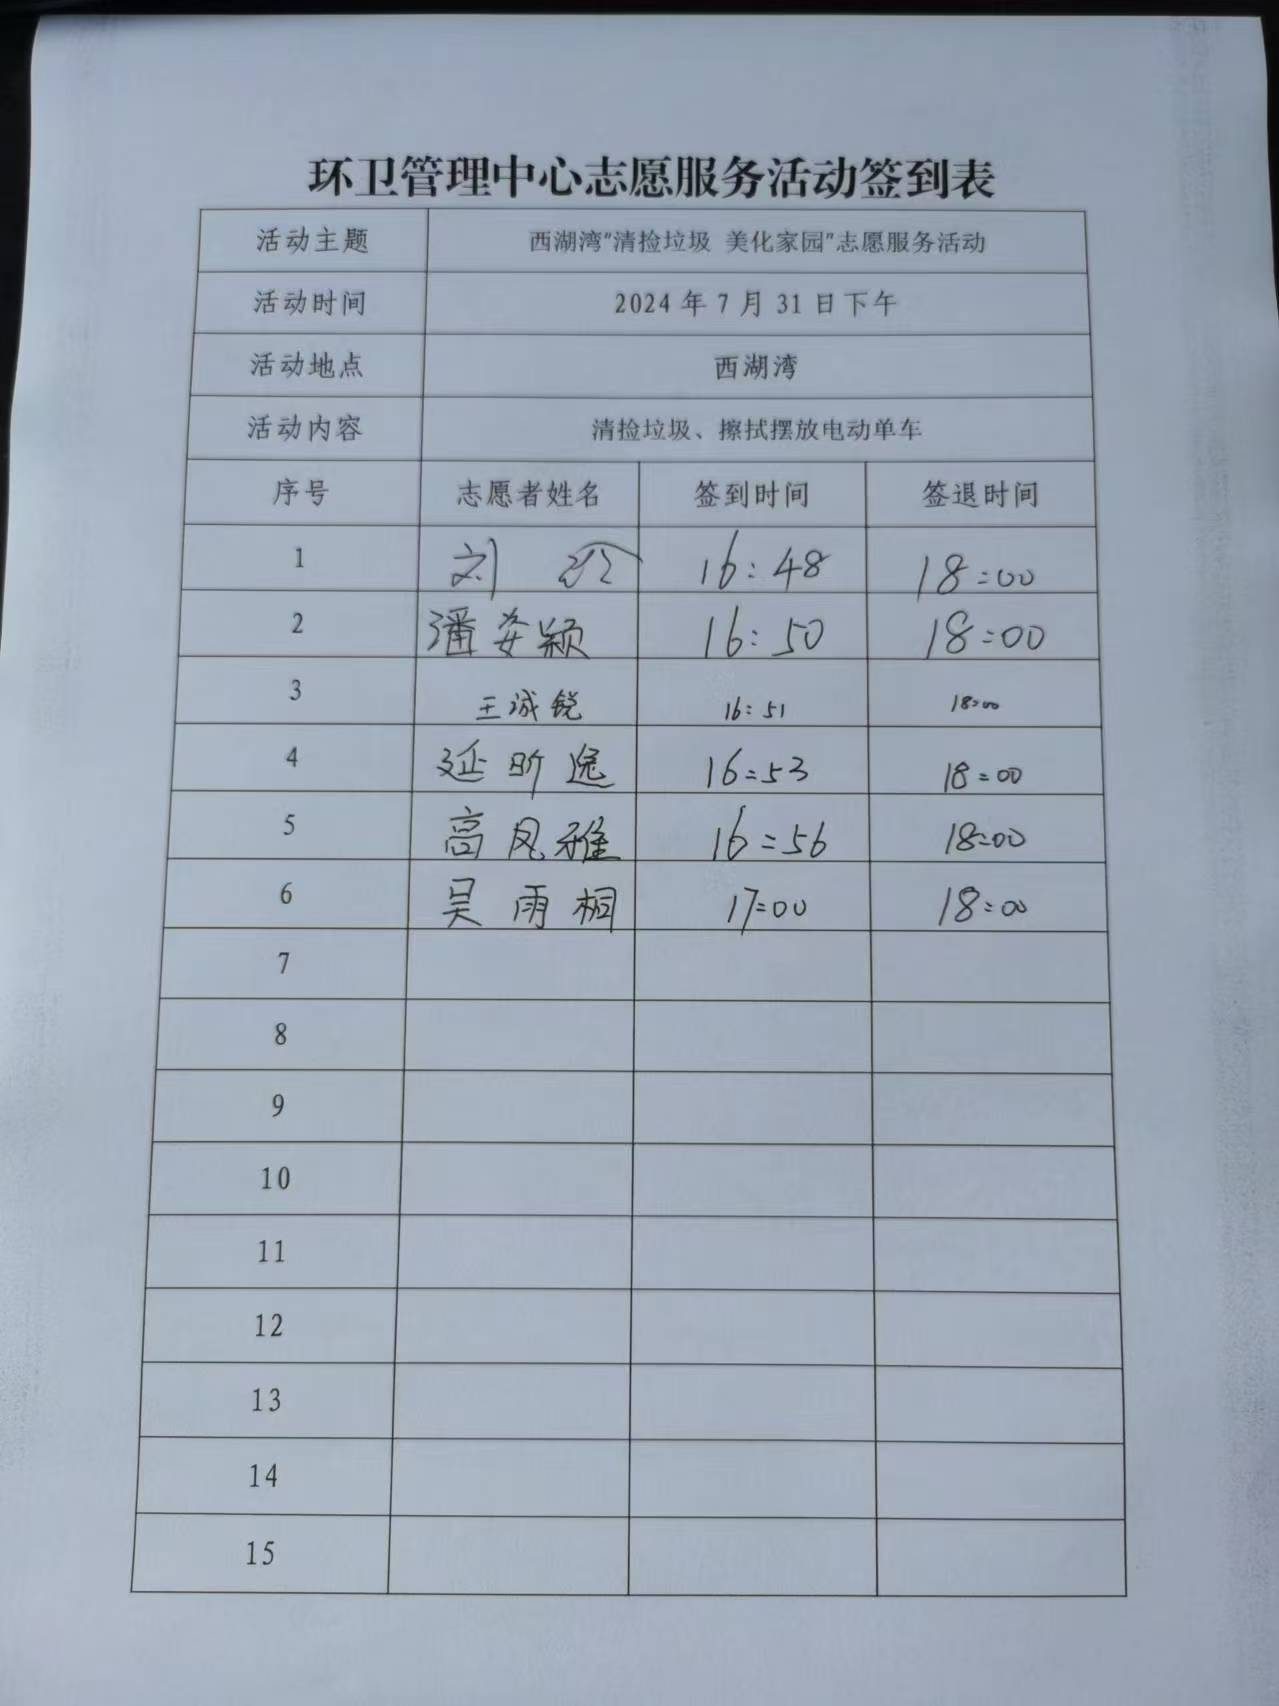 环卫管理中心志愿服务活动签到表
活动主题 西湖湾"清捡垃圾 美化家园"志愿服务活动
活动时间 2024年7月31日下午
活动地点 西湖湾
活动内容 清捡垃圾、擦拭摆放电动单车
序号 志愿者姓名 签到时间 签退时间
1 刘 16:48 18:00
2 潘姿颖 16:50 18:00
3 王诚锐 16:51 18:00
4 延昕逸 16:53 18:00
5 高凤雅 16:56 18:00
6 吴雨桐 17:00 18:00
7
8
9
10
11
12
13
14
15